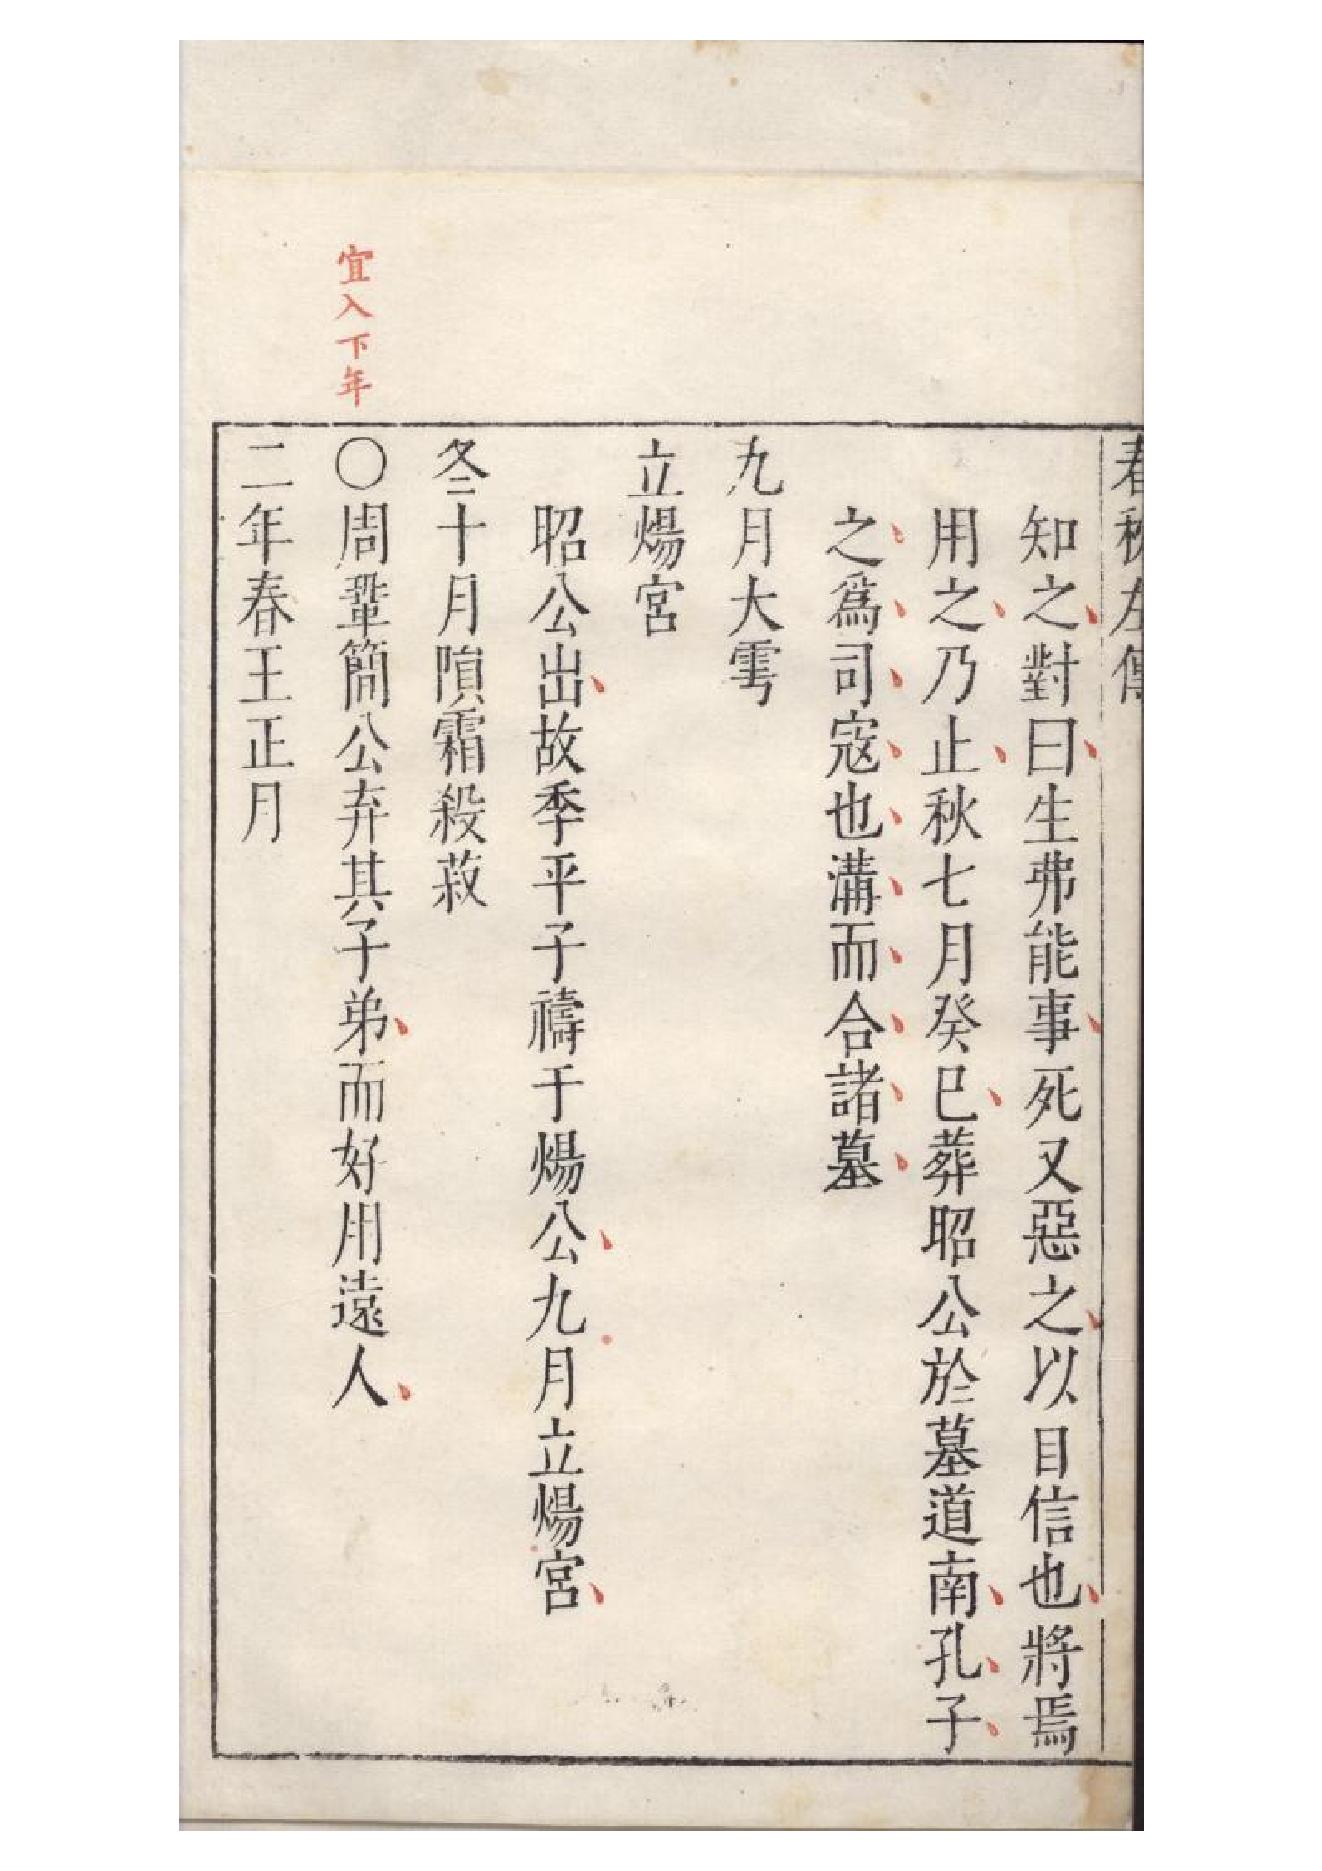 春秋左傳
知之對曰生弗能事死又惡之以目信也將焉
用之乃止秋七月癸巳葬昭公於墓道南孔子
之爲司寇也溝而合諸墓
九月大雩
立煬宮
昭公出故季平子禱于煬公九月立煬宮
冬十月隕霜殺菽
宜入下年
〇周鞏簡公弃其子弟而好用遠人
二年春王正月